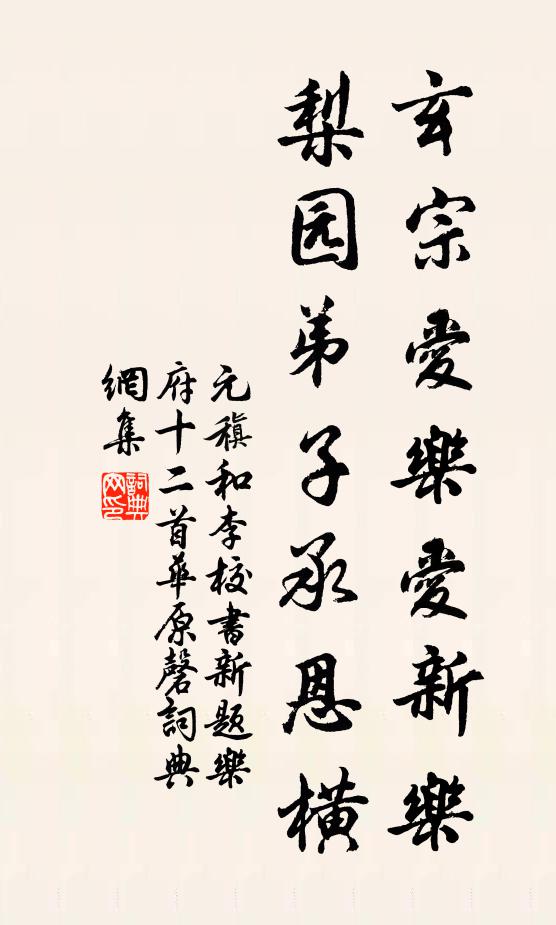 玄宗愛樂愛新樂
梨园弟子承恩橫
元稹和李校書新题樂
府十二首華原磬詞典
網集
詞典
网印